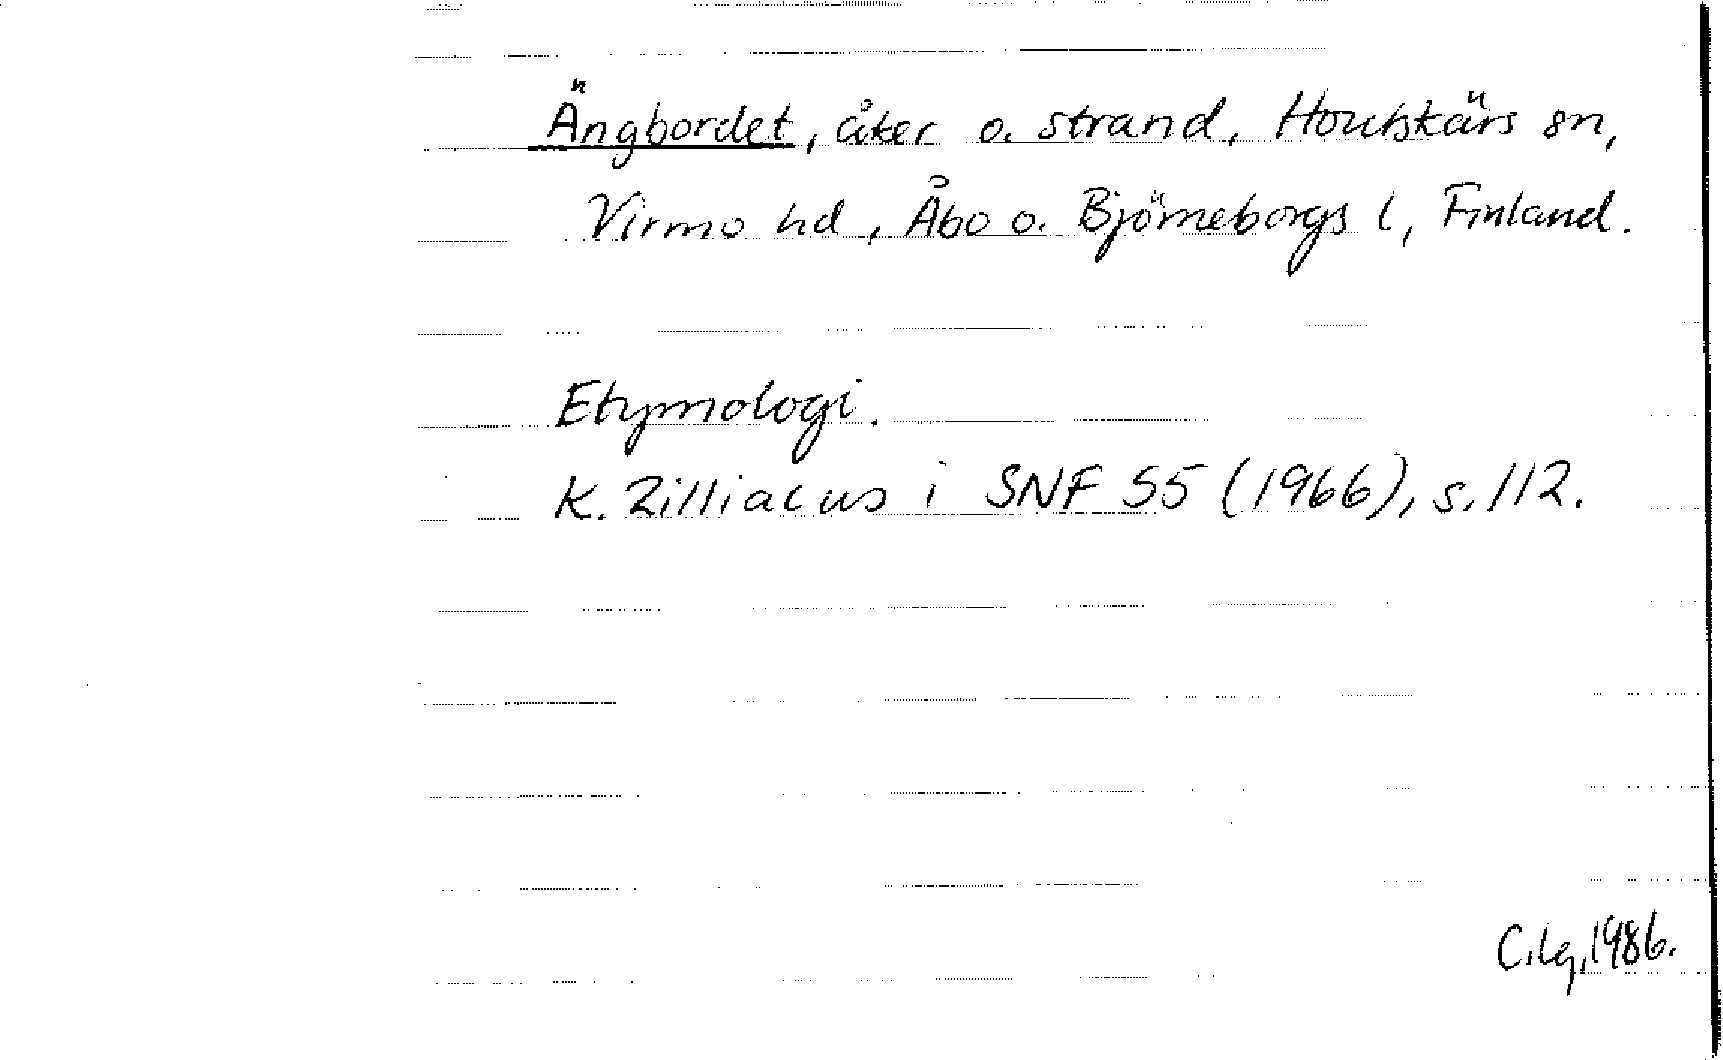 Ängbordet, åker o. strand, Houtskärs sn,
Virmo hd, Åbo o. Björneborgs l, Finland.
Etymologi.
K. Zilliacus i SNF 55 (1966), s. 112.
C.Lg, 1986.